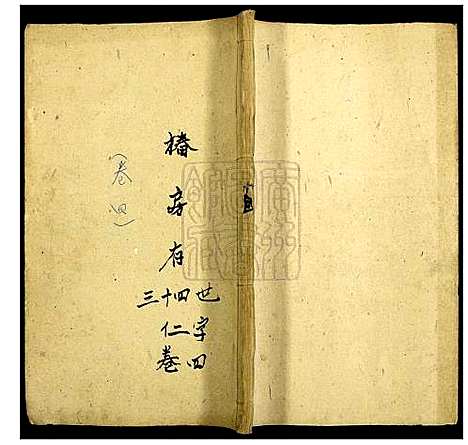 椿房有
世四十三
字二仁
四卷
(卷四)